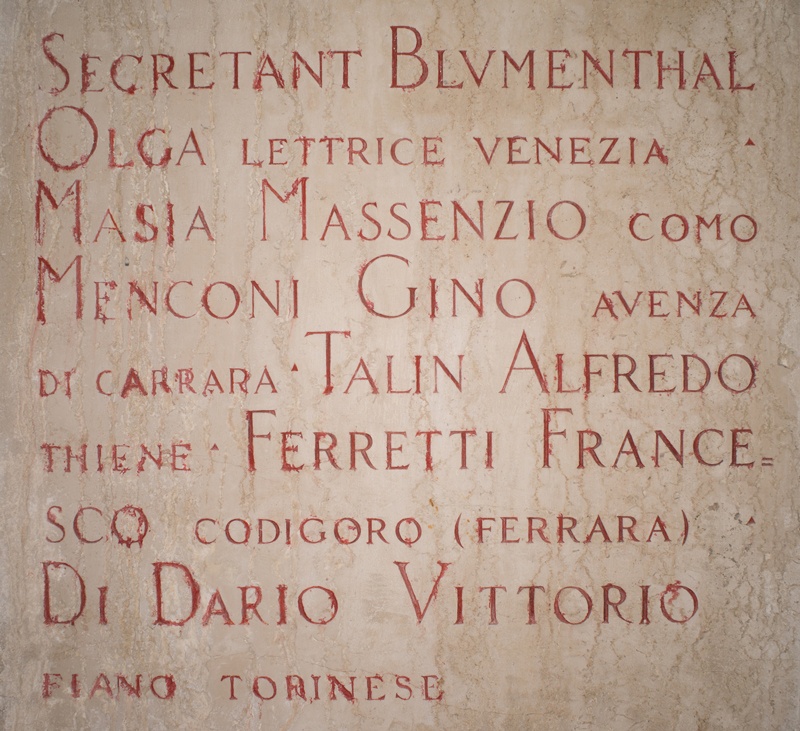 SECRETANT BLVMENTHAL
OLGA LETTRICE VENEZIA ·
MASIA MASSENZIO COMO
MENCONI GINO AVENZA
DI CARRARA · TALIN ALFREDO
THIENE · FERRETTI FRANCE=
SCO CODIGORO (FERRARA) ·
DI DARIO VITTORIO
FIANO TORINESE